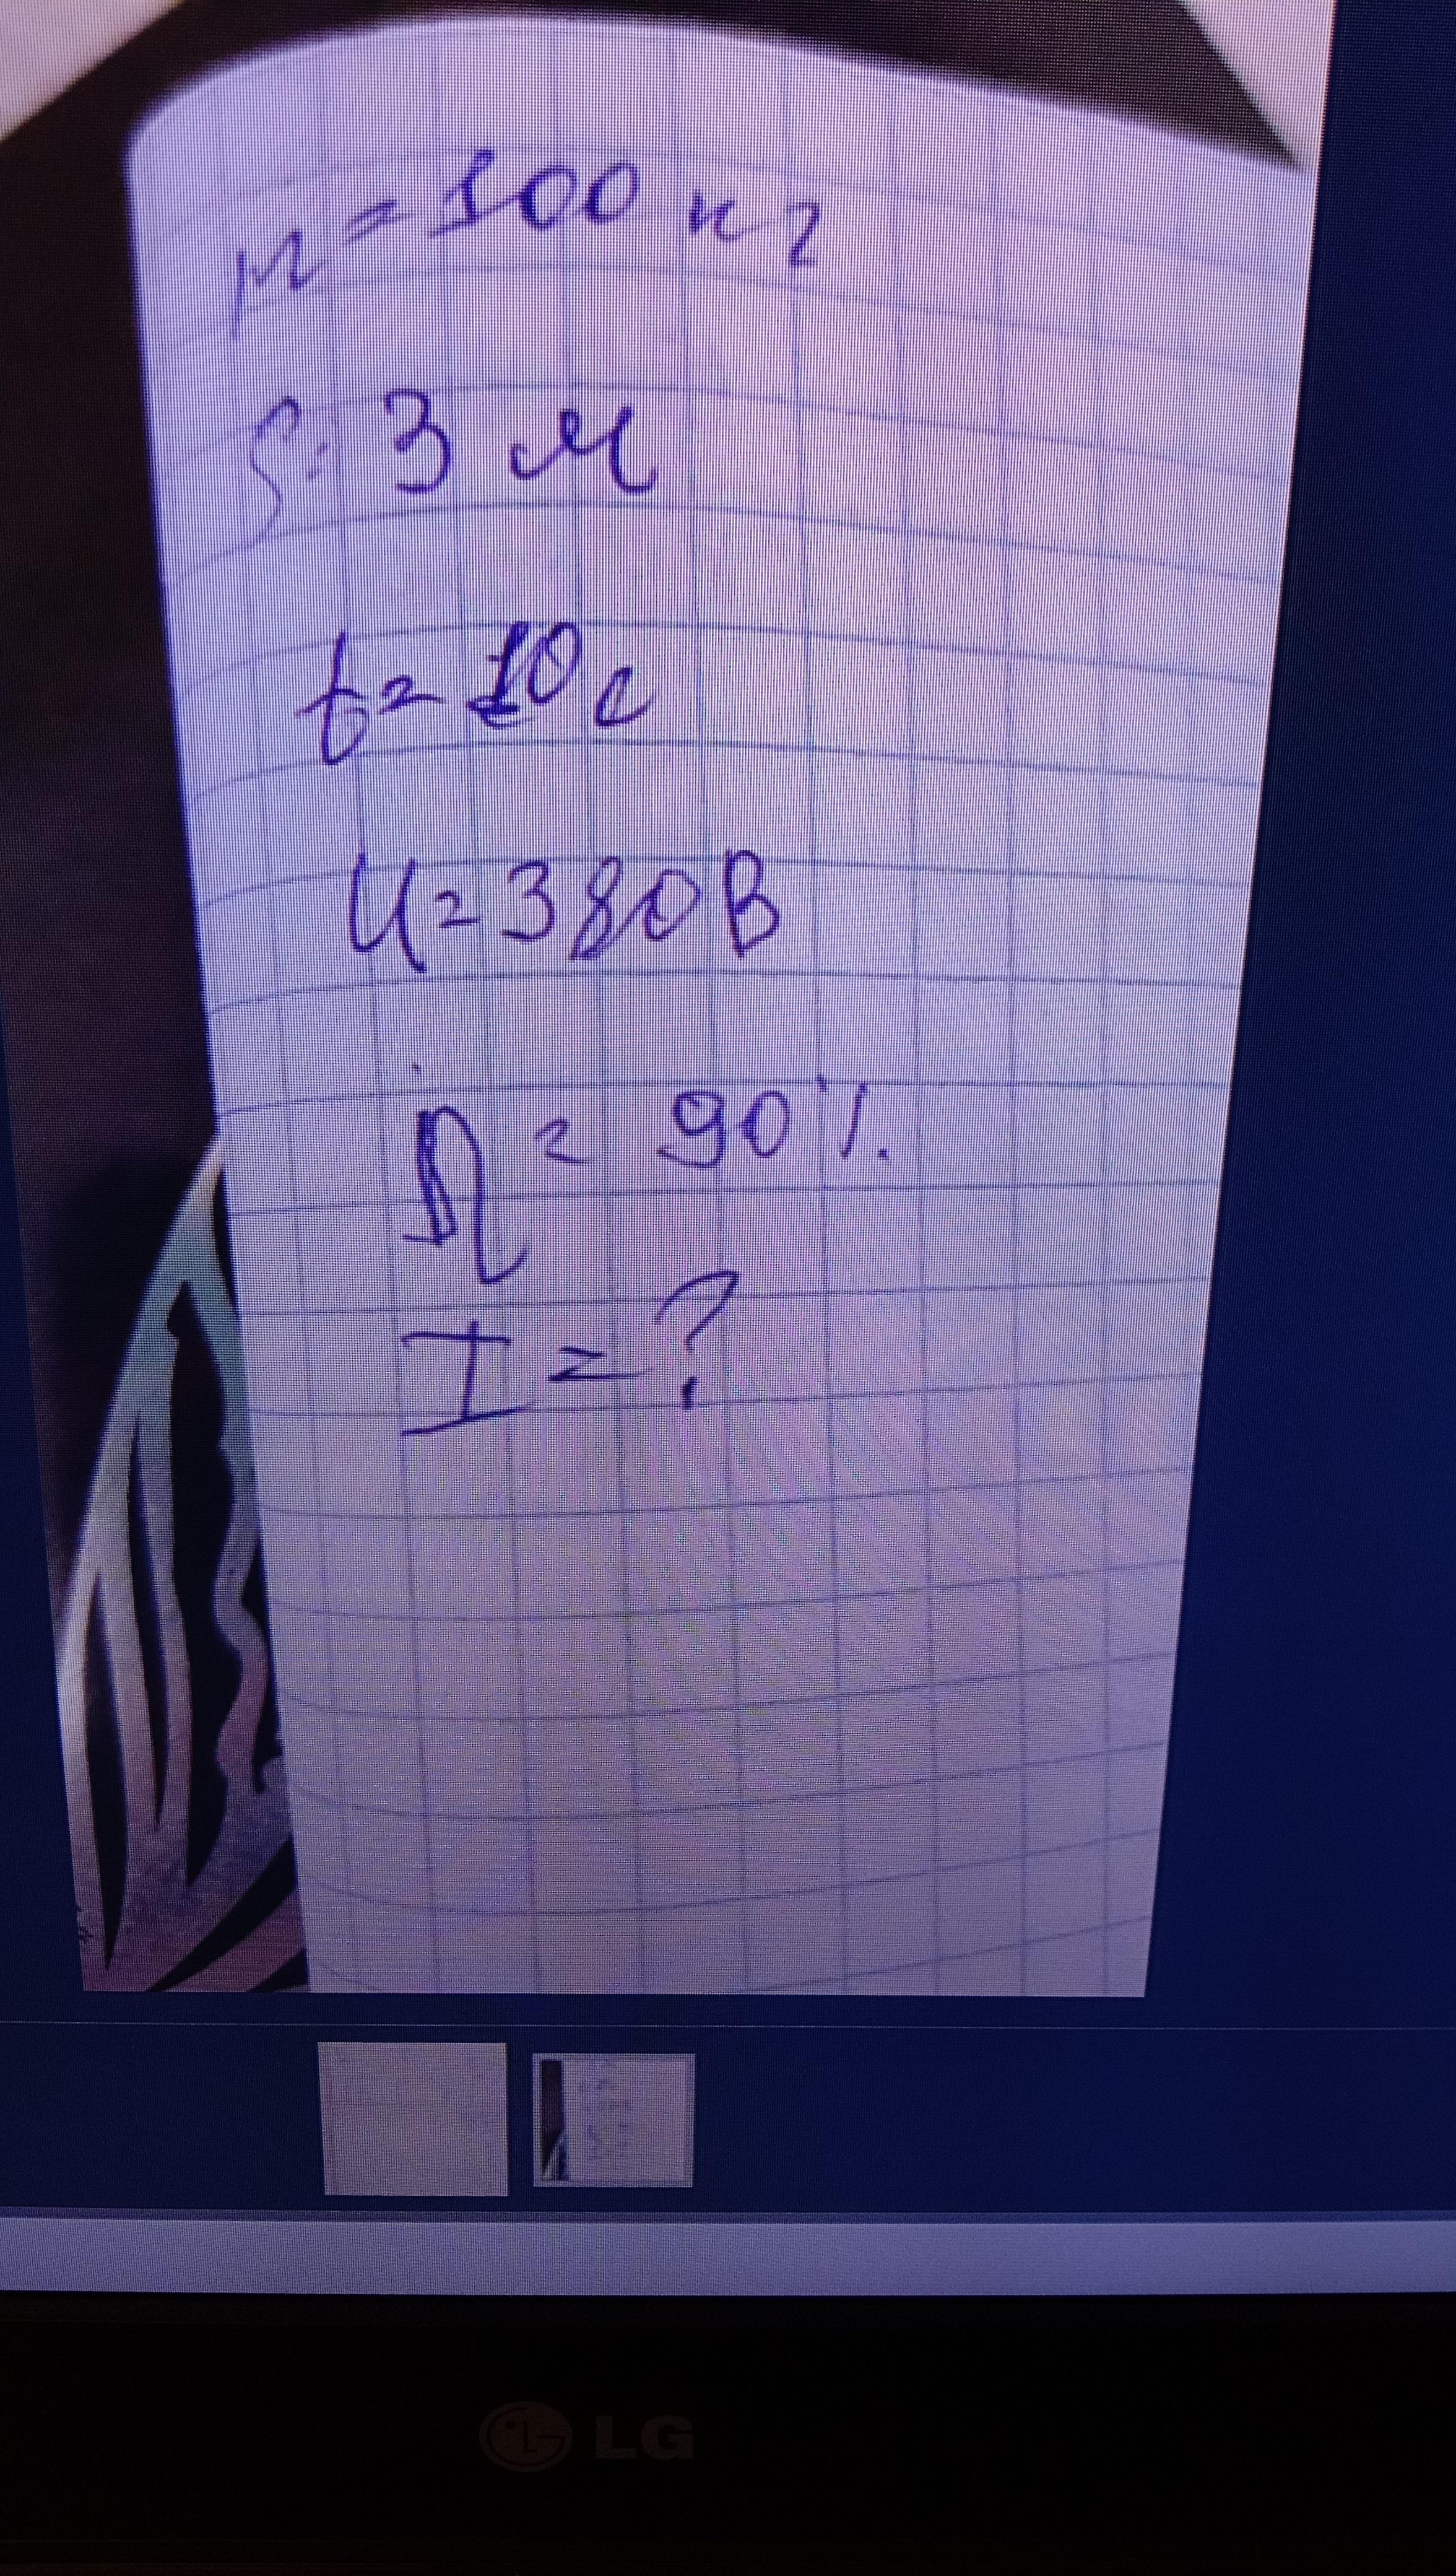 m = 100 кг
S = 3 м
t = 10 с
U = 380 В
η = 90%.
I = ?
LG